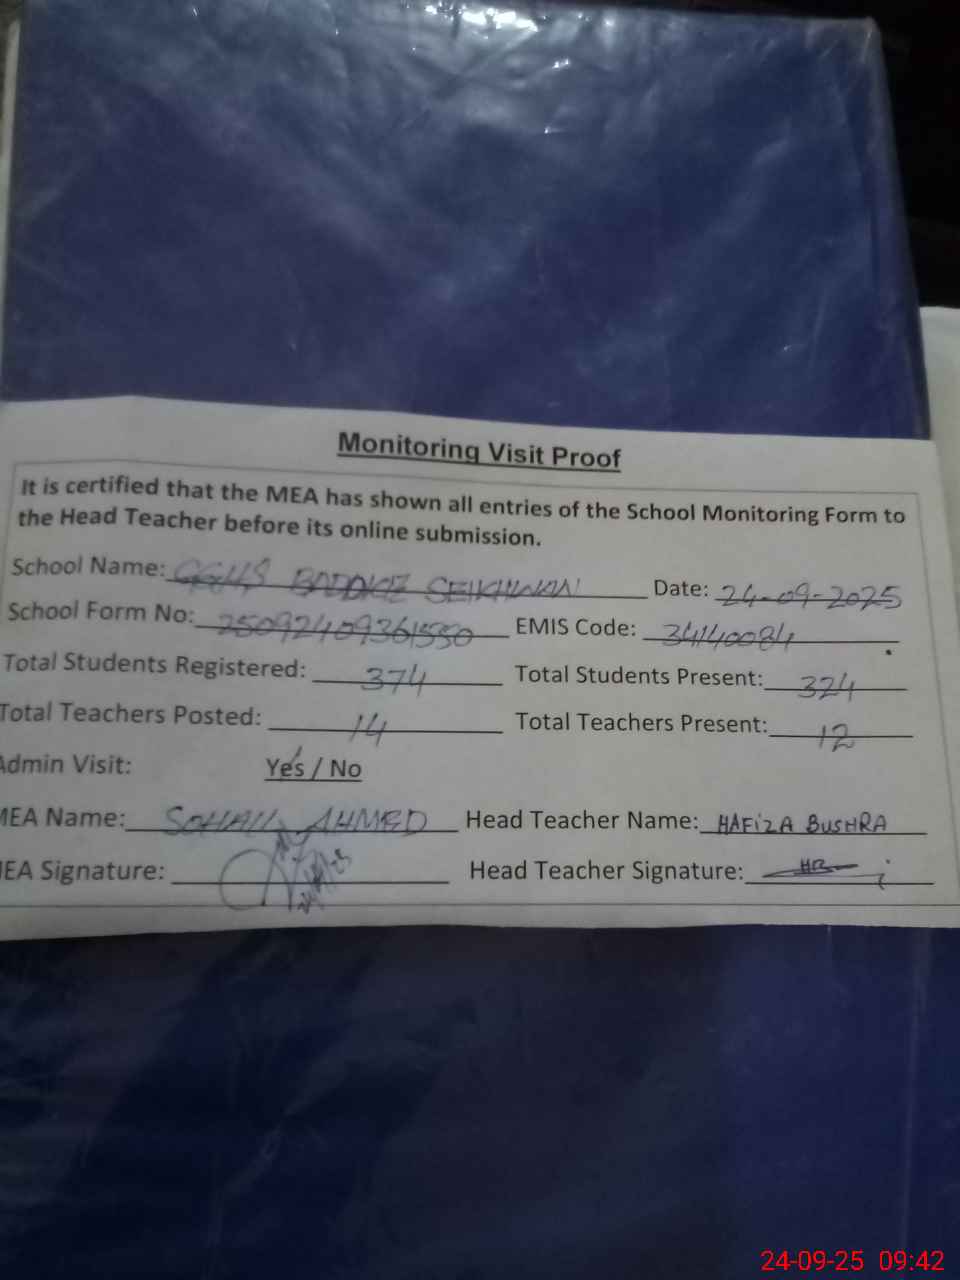 Monitoring Visit Proof
It is certified that the MEA has shown all entries of the School Monitoring Form to
the Head Teacher before its online submission.
School Name: Date: 24-09-2025
School Form No: 25092409361550 EMIS Code: 34140084
Total Students Registered: 374 Total Students Present: 324
Total Teachers Posted: 14 Total Teachers Present: 12
Admin Visit: Yes / No
MEA Name: SOHAIL AHMED Head Teacher Name: HAFIZA BUSHRA
MEA Signature: Head Teacher Signature: HB
24-09-25 09:42